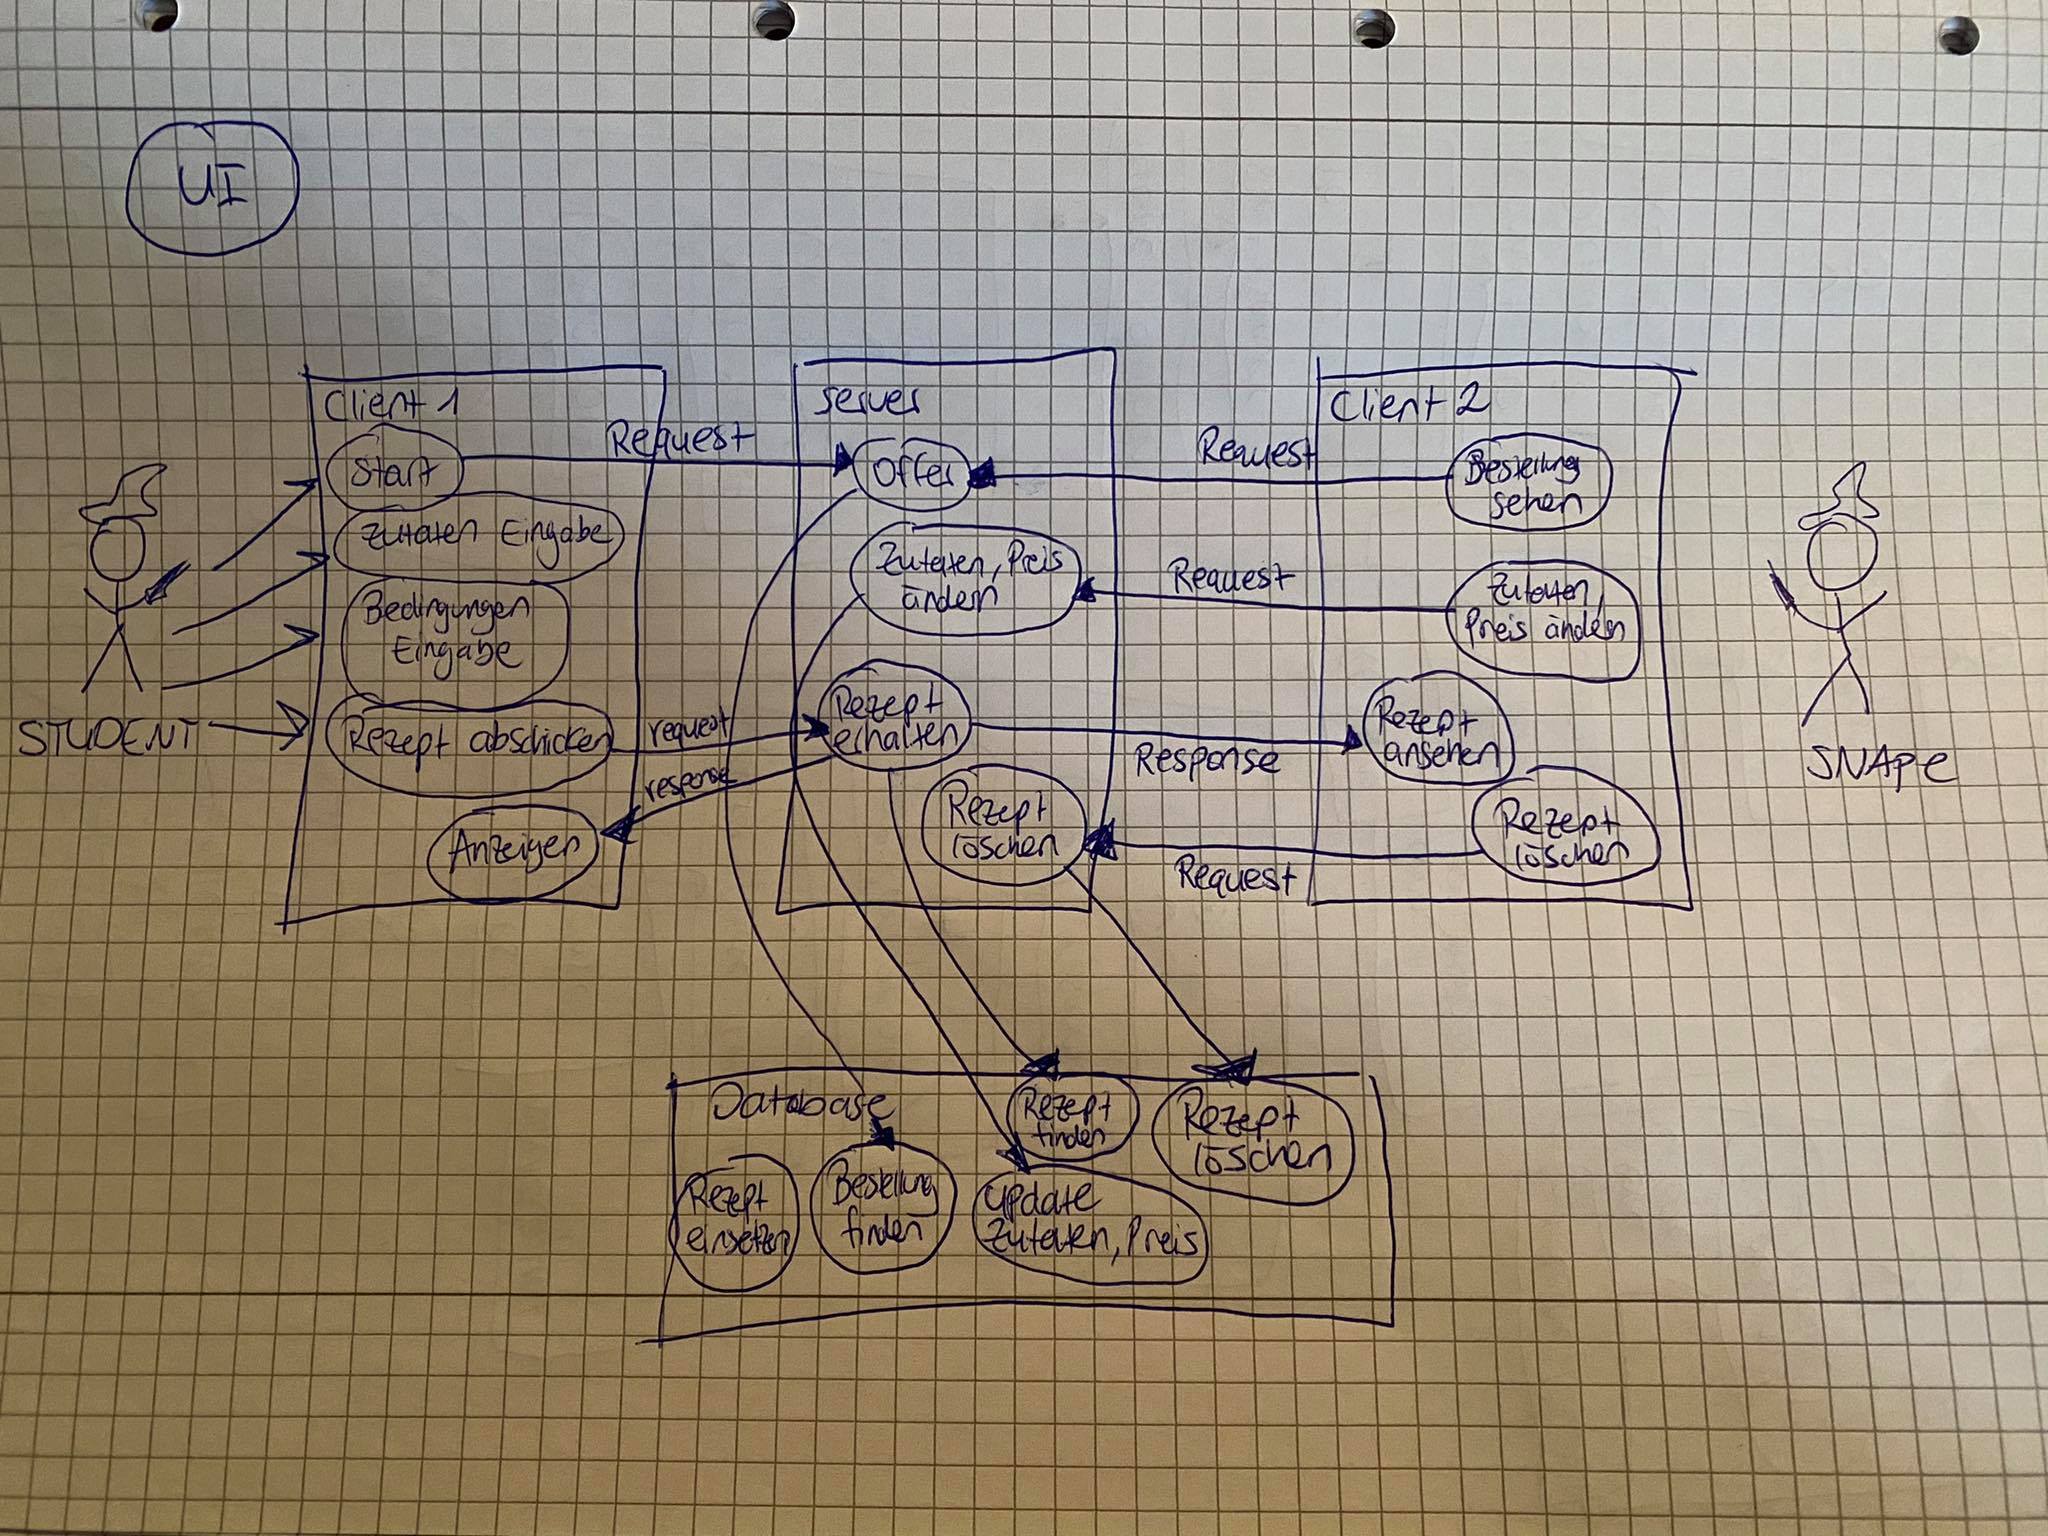 UI
Client 1
Start
Zutaten Eingabe
Bedingungen
Eingabe
Rezept abschicken
Anzeigen
STUDENT
Request
request
response
server
Offer
Zutaten, Preis
ändern
Rezept
erhalten
Rezept
löschen
Request
Request
Response
Request
Client 2
Bestellung
sehen
Zutaten,
Preis ändern
Rezept
ansehen
Rezept
löschen
SNApe
Database
Rezept
einsetzen
Bestellung
finden
Rezept
finden
update
Zutaten, Preis
Rezept
löschen